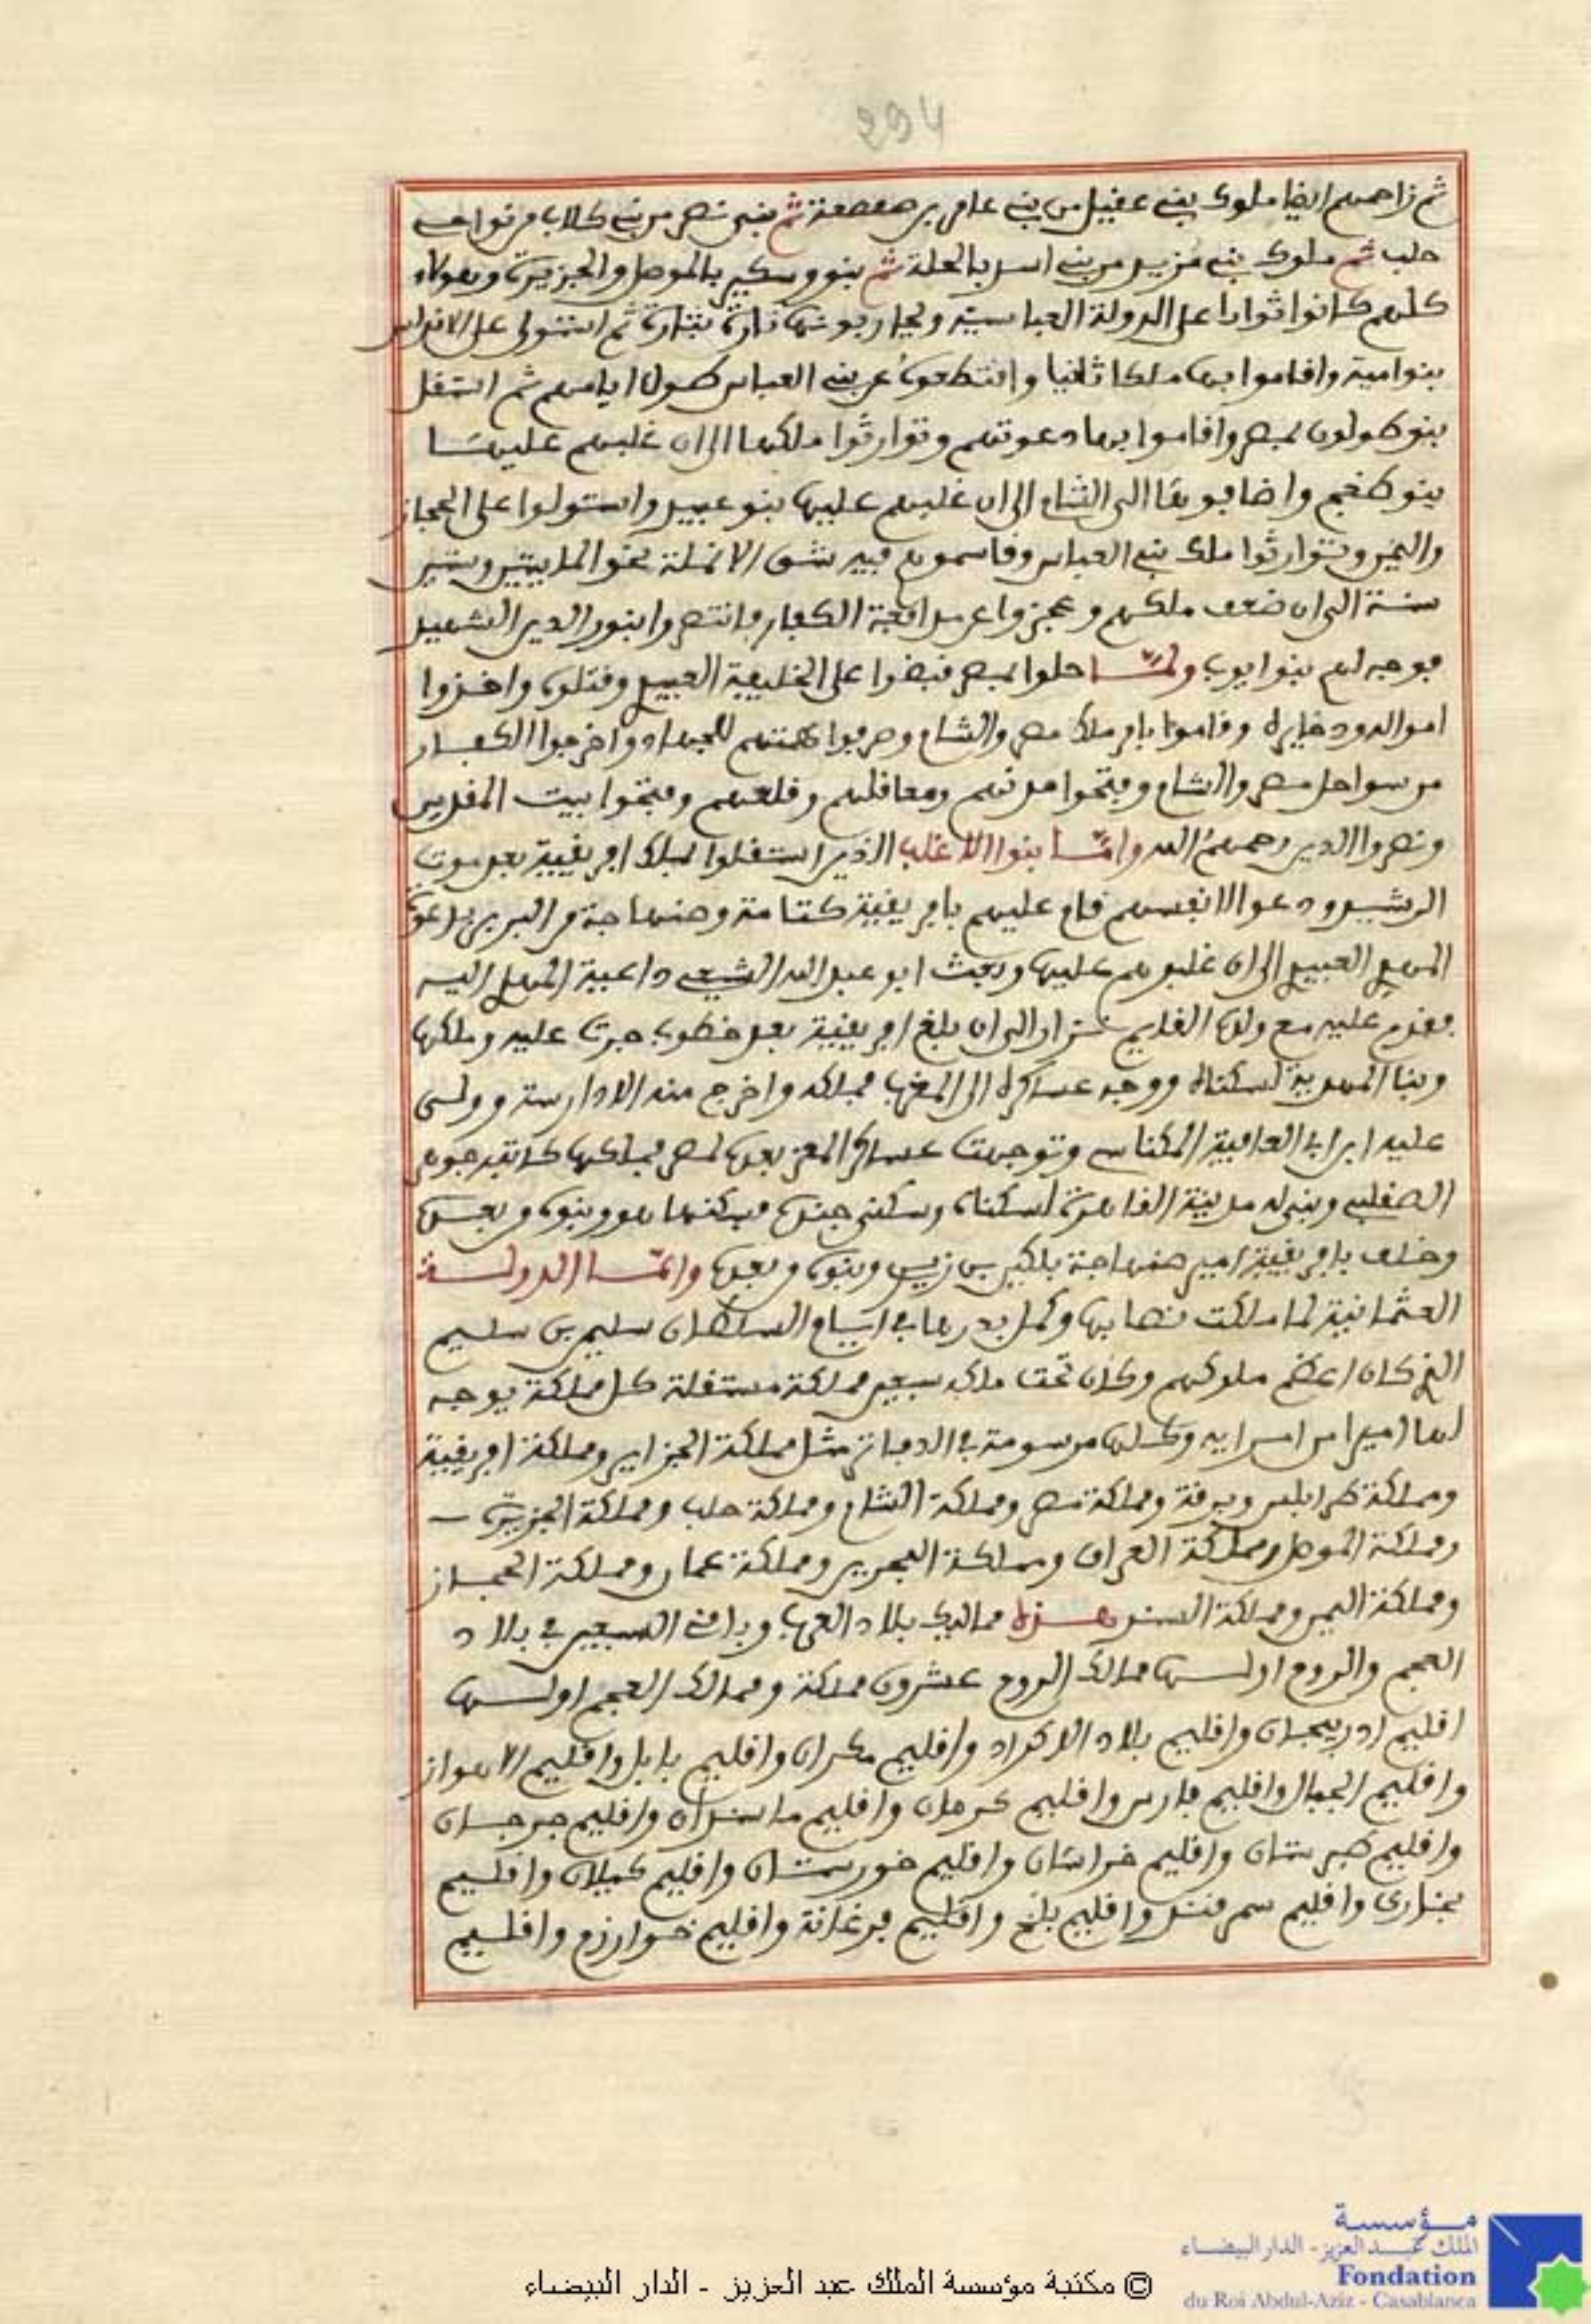 294
ثم زاحمهم ايضا ملوك بني عقيل من بني عامر بن صعصعة ثم بني نصر من بني كلاب من نواحي
حلب ثم ملوك بني مزيد من بني اسد بالحلة ثم بنو وسكير بالموصل والجزيرة وهولاء
كلهم كانوا ثوارا على الدولة العباسية ويحاربونها تارة بتارة ثم استولى على الاندلس
بنوا مية واقاموا بها ملكا ثانيا واقتطعوه عن بني العباس طول ايامهم ثم استقل
بنو طولون بمصر واقاموا بها دعوتهم وتوارثوا ملكها الى ان غلبهم عليها
بنو طغج واضافوها الى الشام الى ان غلبهم عليها بنو عبيد واستولوا على الحجاز
واليمن وتوارثوا ملك بني العباس وقاسموهم فيه شق الانملة نحو المايتين وستين
سنة الى ان ضعف ملكهم وعجزوا عن مدافعة الكفار فانتصروا بنور الدين الشهيد
فوجه لهم بنوا يوب ولما حلوا بمصر قبضوا على الخليفة العبيدي وقتلوه واخذوا
امواله وذخايره وقاموا بامر ملك مصر والشام وصرفوا همتهم للجهاد واخرجوا الكفار
من سواحل مصر والشام وفتحوا مدنهم ومعاقلهم وقلعهم وفتحوا بيت المقدس
ونصروا الدين رحمهم الله واما بنوا الاغلب الذين استقلوا بملك افريقية بعد موت
الرشيد ودعوا لانفسهم قام عليهم بافريقية كتامة وصنهاجة من البربر بدعوة
المهدي العبيدي الى ان غلبوهم عليها وبعث ابو عبد الله الشيعي داعية المهدي اليه
فقدم عليه مع ولده القايم نزار الى ان بلغ افريقية بعد خطوب جرت عليه وملكها
وبنا المهدية لسكناه ووجه عساكره الى المغرب فملكه واخرج منه الادارسة وولى
عليه ابن ابي العافية المكناسي وتوجهت عساكر المعز بعدها لمصر فملكها كاتبه جوهر
الصقلبي وبنى له مدينة القاهرة لسكناه وسكنى جنده فسكنها هو وبنوه من بعده
وخلف بافريقية امير صنهاجة بلكين بن زيري وبنوه من بعده واما الدولة
العثمانية لما ملكت نصابها وكمل بدرها في ايام السلطان سليم بن سليم
الذي كان اعظم ملوكهم وكان تحت ملكه سبعين مملكة مستقلة كل مملكة يوجه
لها اميرا من امرايه وكلها مرسومة في الدفاتر مثل مملكة الجزاير ومملكة افريقية
ومملكة طرابلس وبرقة ومملكة مصر ومملكة الشام ومملكة حلب ومملكة الجزيرة
ومملكة الموصل ومملكة العراق ومملكة البحرين ومملكة عمان ومملكة الحجاز
ومملكة اليمن ومملكة السند هذه ممالك بلاد العرب وباقي السبعين في بلاد
العجم والروم اولها ممالك الروم عشرون مملكة وممالك العجم اولها
اقليم ادربيجان واقليم بلاد الاكراد واقليم مكران واقليم بابل واقليم الاهواز
واقليم الجبال واقليم فارس واقليم كرمان واقليم مازندران واقليم جرجان
واقليم طبرستان واقليم خراسان واقليم خورستان واقليم كيلان واقليم
بخارى واقليم سمرقند واقليم بلخ واقليم فرغانة واقليم خوارزم واقليم
مؤسسة
الملك عبد العزيز - الدار البيضاء
Fondation
du Roi Abdul-Aziz - Casablanca
© مكتبة مؤسسة الملك عبد العزيز - الدار البيضاء